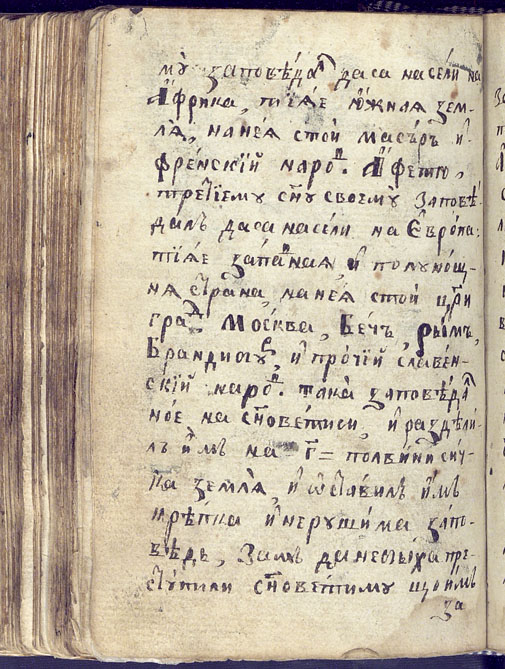 мꙋ̀ заповѣ́далъ даса насели на
А҆́фрика, тїѧ́е ю҆́жнаѧ зем-
лѧ̀, нанеѧ̀ стои̑ масꙋ́ръ и҆-
фре́нскїй наро́д. А҆́фетꙋ,
трет́їемꙋ сн҃ꙋ своемꙋ̀ заповѣ́-
далъ даса населѝ на Е҆вро́па:
тїѧ́е за́паднаѧ, и҆ полꙋно́щ-
нѧ стра̀на, нанеѧ̀ стои̑ цр҃и
град, Москва, Бечъ, ры́мъ,
Брандибꙋ́р, и҆ про́чїй славе́н-
скїй наро́д. така̀ заповѣ́да
ное на сн҃овети си, и҆ раздѣлѝ-
лъ и҆̀мъ на г҃= полвѝни си́ч-
ка землѧ̀, и҆ ѡ҆ста́вилъ и҆̀мъ
крѣ́пка и҆ нерꙋши́ма за́по-
вѣдь, за́мъ да небы́ха пре-
стꙋ́пили сн҃овети мꙋ що и҆̀мъ
за